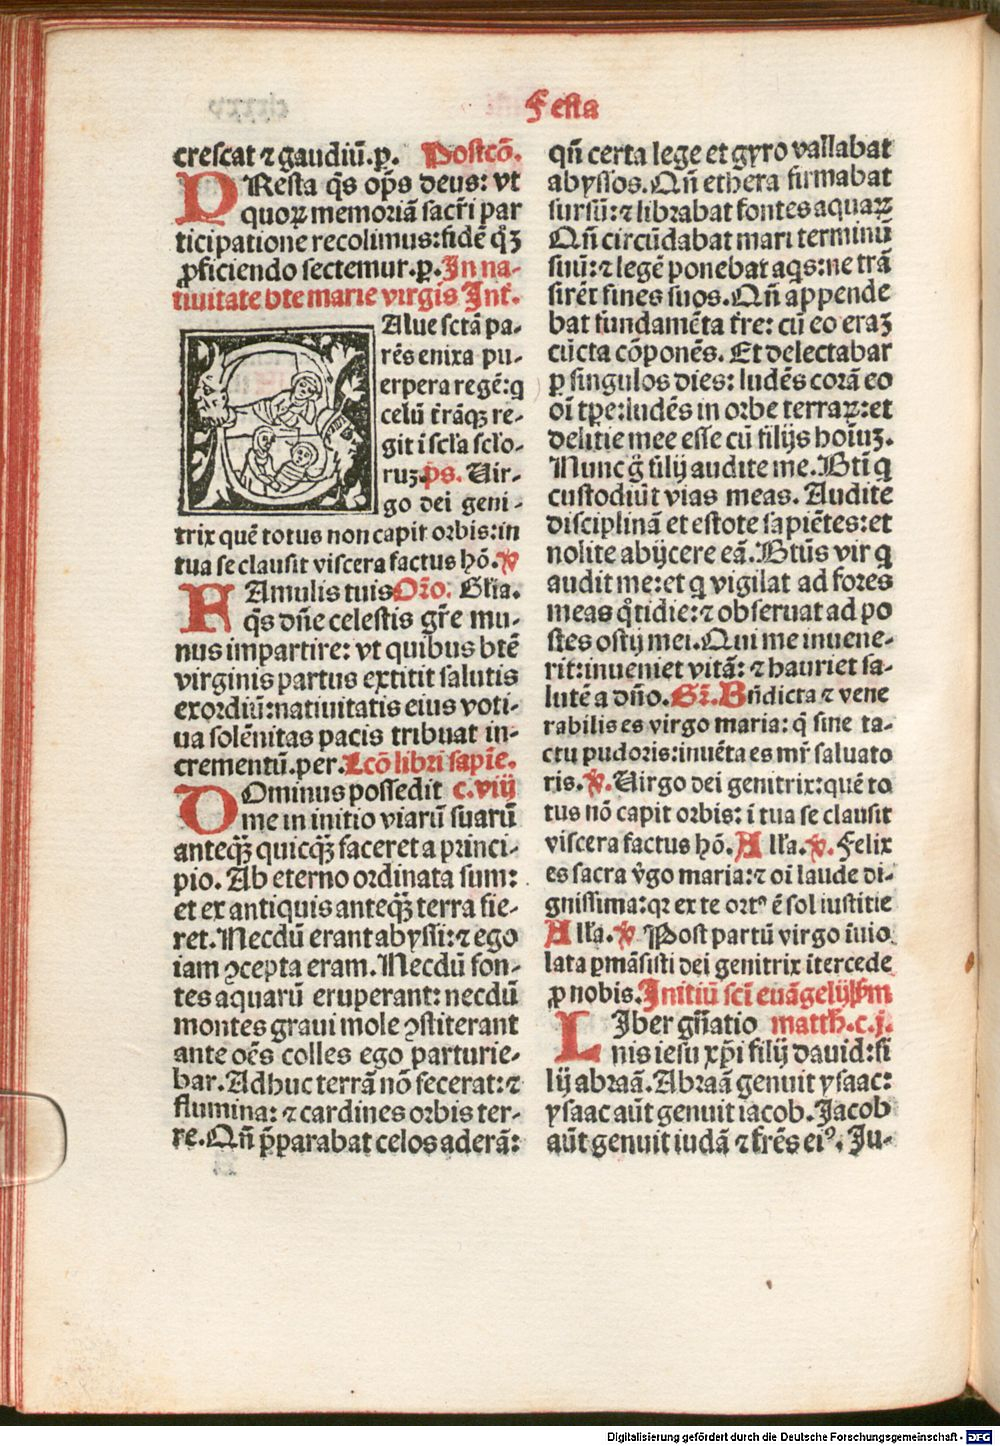 Festa
crescat ⁊ gaudiū.p. Postcō.
PResta q̄s op̄s deus: vt
quoꝝ memoriā sacr̄i par
ticipatione recolimus: fidē qͣꝫ
ꝓficiendo sectemur.p. In na-
tiuitate bte marie virgis Int̄.
SAlue sctā pa-
rēs enixa pu-
erpera regē: q
celū t̄rāqꝫ re-
git ī scl̄a sclo-
ruꝫ. p̄s. Uir-
go dei geni-
trix quē totus non capit orbis: in
tua se clausit viscera factus hō. ℣
FAmulis tuis Or̄o. Gl̄ia.
q̄s dn̄e celestis gr̄e mu-
nus impartire: vt quibus btē
virginis partus extitit salutis
exordiū: natiuitatis eius voti-
ua solēnitas pacis tribuat in-
crementū. per. Lcō libri sapiē.
DOminus possedit c.viij
me in initio viarū suarū
anteqͣꝫ quicqͣꝫ faceret a princi-
pio. Ab eterno ordinata sum:
et ex antiquis anteqͣꝫ terra fie-
ret. Necdū erant abyssi: ⁊ ego
iam ꝯcepta eram. Necdū fon-
tes aquarū eruperant: necdū
montes graui mole ꝯstiterant
ante oēs colles ego parturie-
bar. Adhuc terrā nō fecerat: ⁊
flumina: ⁊ cardines orbis ter-
re. Qn̄ p̄parabat celos aderā:
qn̄ certa lege et gyro vallabat
abyssos. Qn̄ ethera firmabat
sursū: ⁊ librabat fontes aquaꝝ
Qn̄ circūdabat mari terminū
suū: ⁊ legē ponebat aq̄s: ne trā
sirēt fines suos. Qn̄ appende
bat fundamēta t̄re: cū eo eraꝫ
cūcta cōponēs. Et delectabar
ꝑ singulos dies: ludēs corā eo
oī tꝑe: ludēs in orbe terraꝝ: et
delitie mee esse cū filijs hoīuꝫ.
Nunc g̊ filij audite me. Btī q̄
custodiūt vias meas. Audite
disciplinā et estote sapiētes: et
nolite abijcere eā. Btūs vir q̄
audit me: et q̄ vigilat ad fores
meas qͦtidie: ⁊ obseruat ad po
stes ostij mei. Qui me inuene-
rit: inueniet vitā: ⁊ hauriet sa-
lutē a dn̄o. Gr̄. Bn̄dicta ⁊ vene
rabilis es virgo maria: q̄ sine ta-
ctu pudoris: inuēta es mr̄ saluato
ris. ℣. Uirgo dei genitrix: quē to
tus nō capit orbis: ī tua se clausit
viscera factus hō. All̄a. ℣. Felix
es sacra v̊go maria: ⁊ oī laude di-
gnissima: qꝛ ex te ortꝰ ē sol iustitie
All̄a. ℣ Post partū virgo īuio
lata ꝑmāsisti dei genitrix ītercede
ꝓ nobis. Initiū scī euāgelij ẜm
LIber gn̄atio matth.c.j.
nis iesu xp̄i filij dauid: fi
lij abraā. Abraā genuit ysaac:
ysaac aūt genuit iacob. Jacob
aūt genuit iudā ⁊ fr̄es eiꝰ. Ju-
Digitalisierung gefördert durch die Deutsche Forschungsgemeinschaft - DFG